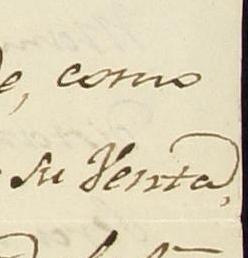 e, como
su Venta,